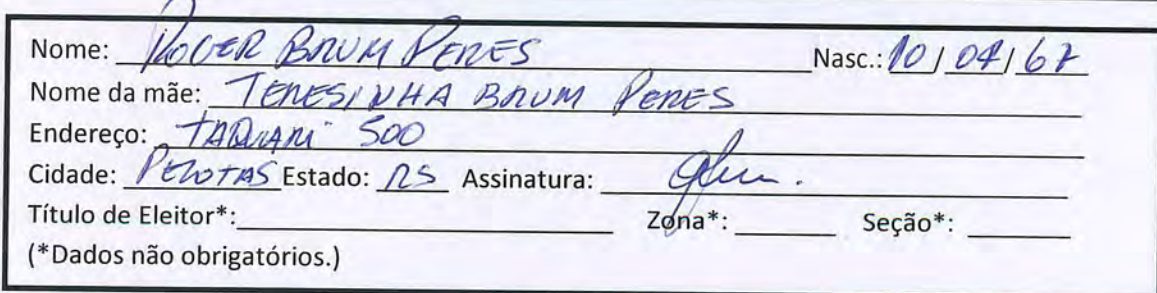 Nome: ROGER BRUM PERES Nasc.: 10 / 07 / 67
Nome da mãe: TERESINHA BRUM PERES
Endereço: TAQUARI 500
Cidade: PELOTAS Estado: RS Assinatura:
Título de Eleitor*: Zona*: Seção*:
(*Dados não obrigatórios.)